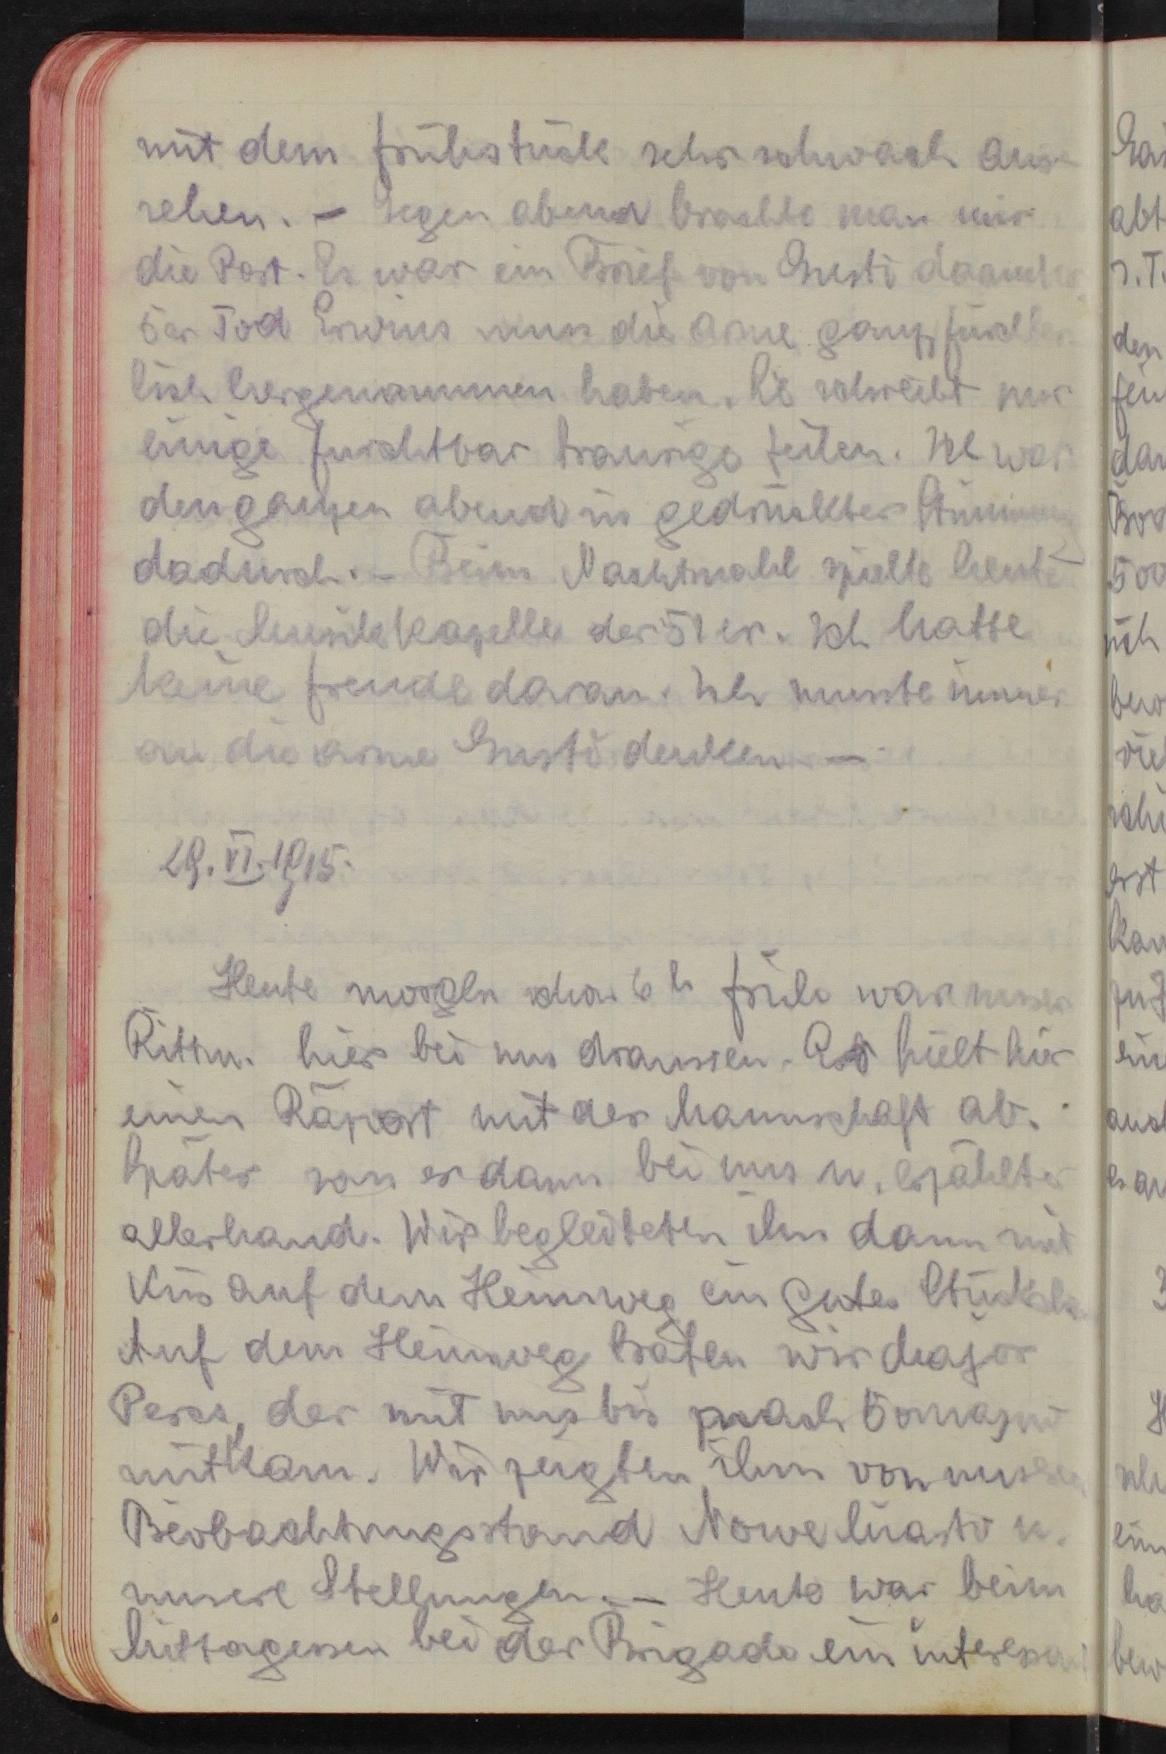 mit dem Frühstück sehr schwach aus
sehen. – Gegen abend brachte man mir
die Post. Es war ein Brief von Gusti
der Tod Erwins muss die Arme ganz fürchter
lich hergenommen haben. Sie schreibt nur
einige furchtbar traurige Zeilen. Ich war
den ganzen abend in gedrückter Stimmung
dadurch. – Beim Nachtmahl spielte heute
die Musikkapelle der 51er. Ich hatte
keine Freude daran. Ich musste immer
an die arme Gusti denken. –
29. VI. 1915.
Heute morgen schon 6 h früh war unser
Rittm. hier bei uns draussen. Er hielt hier
einen Räport mit der Mannschaft ab.
Später sass er dann bei uns u. erzählte
allerhand. Wir begleiteten ihn dann mit
auf dem Heimweg ein gutes
Auf dem Heimweg trafen wir Major
der mit uns bis nach
mitkam. Wir zeigten ihm von unseren
Beobachtungsstand Nowe Miasto u.
unsere Stellungen. – Heute war beim
Mittagessen bei der Brigade ein interessan
abt
den
500
ich
viel
erst